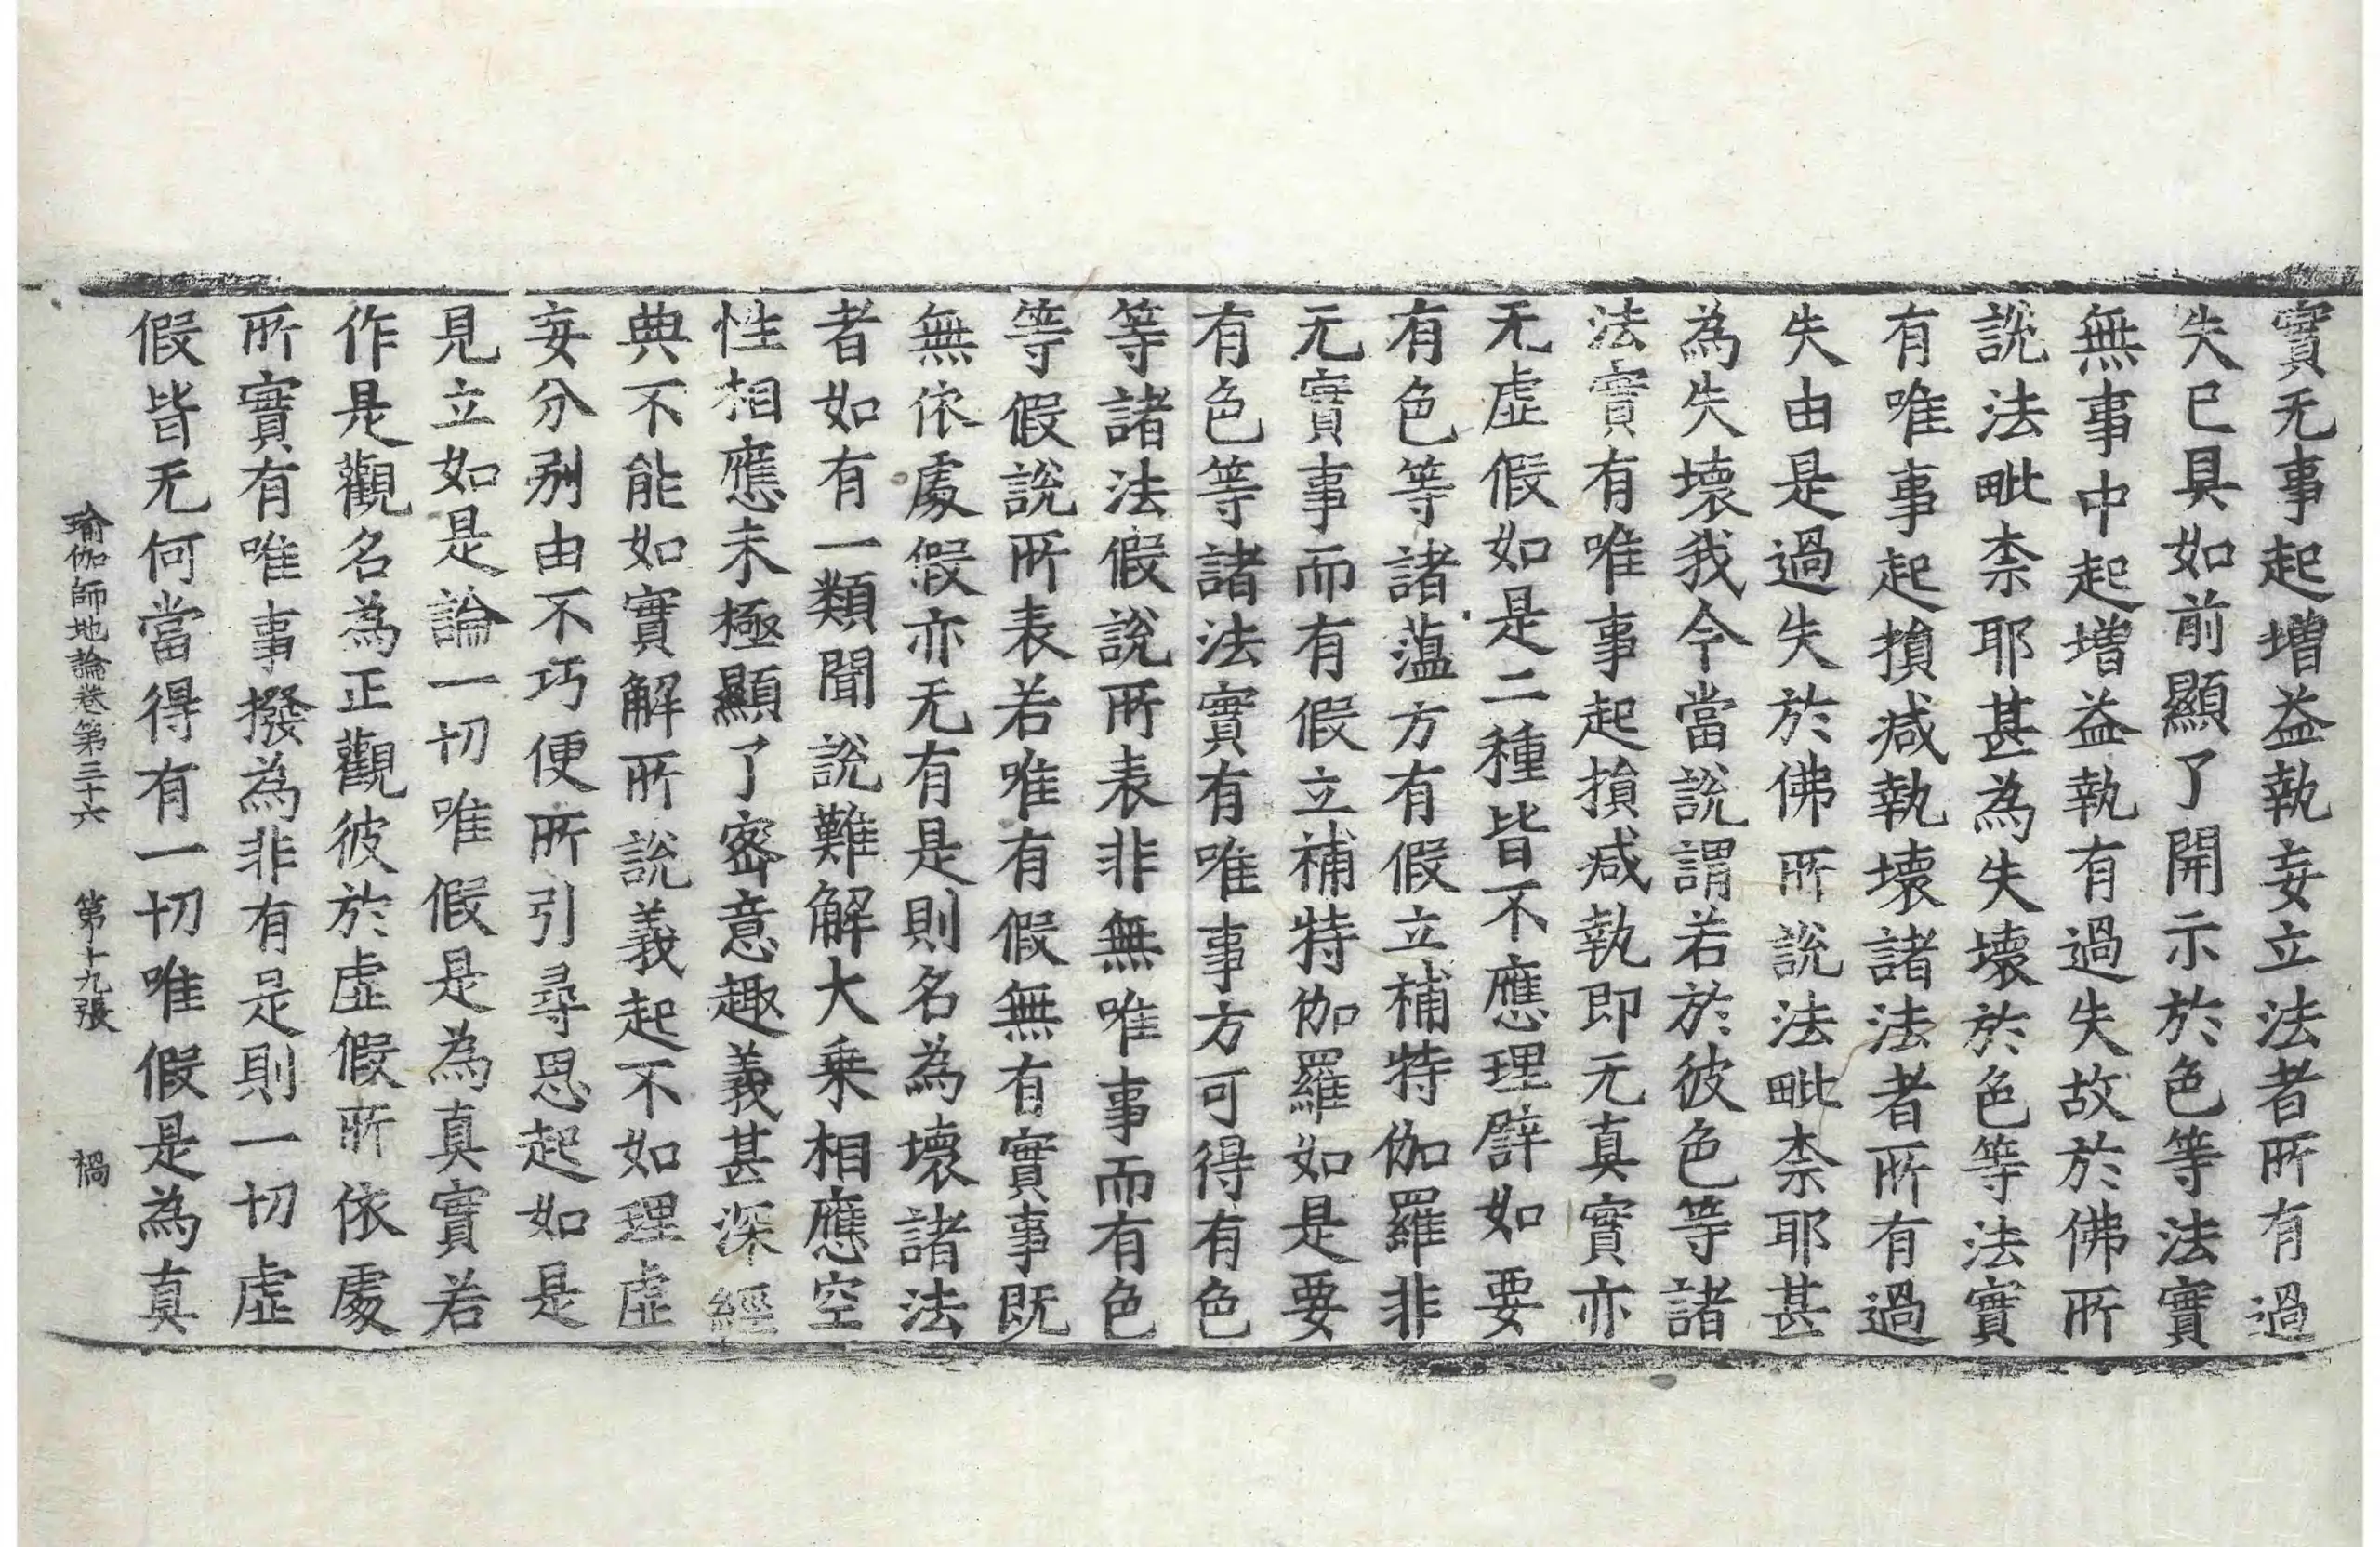 實无事起増益執妄立法者所有過
失已具如前顯了開示於色等法實
無事中起増益執有過失故於佛所
說法毗柰耶甚為失壞於色等法實
有唯事起損减執壞諸法者所有過
失由是過失於佛所說法毗柰耶甚
為失壞我今當說謂若於彼色等諸
法實有唯事起損减執即无真實亦
无虛假如是二種皆不應理譬如要
有色等諸蕰方有假立補特伽羅非
无實事而有假立補特伽羅如是要
有色等諸法實有唯事方可得有色
等諸法假說所表非無唯事而有色
等假說所表若唯有假無有實事既
無依處假亦无有是則名為壞諸法
者如有一類聞說難解大乗相應空
性相應未極顯了密意趣義甚深經
典不能如實解所說義起不如理虛
妄分別由不巧便所引尋思起如是
見立如是論一切唯假是為真實若
作是觀名為正觀彼於虛假所依處
所實有唯事撥為非有是則一切虛
假皆无何當得有一切唯假是為真
瑜伽師地論卷第三十六 第十九張 禍